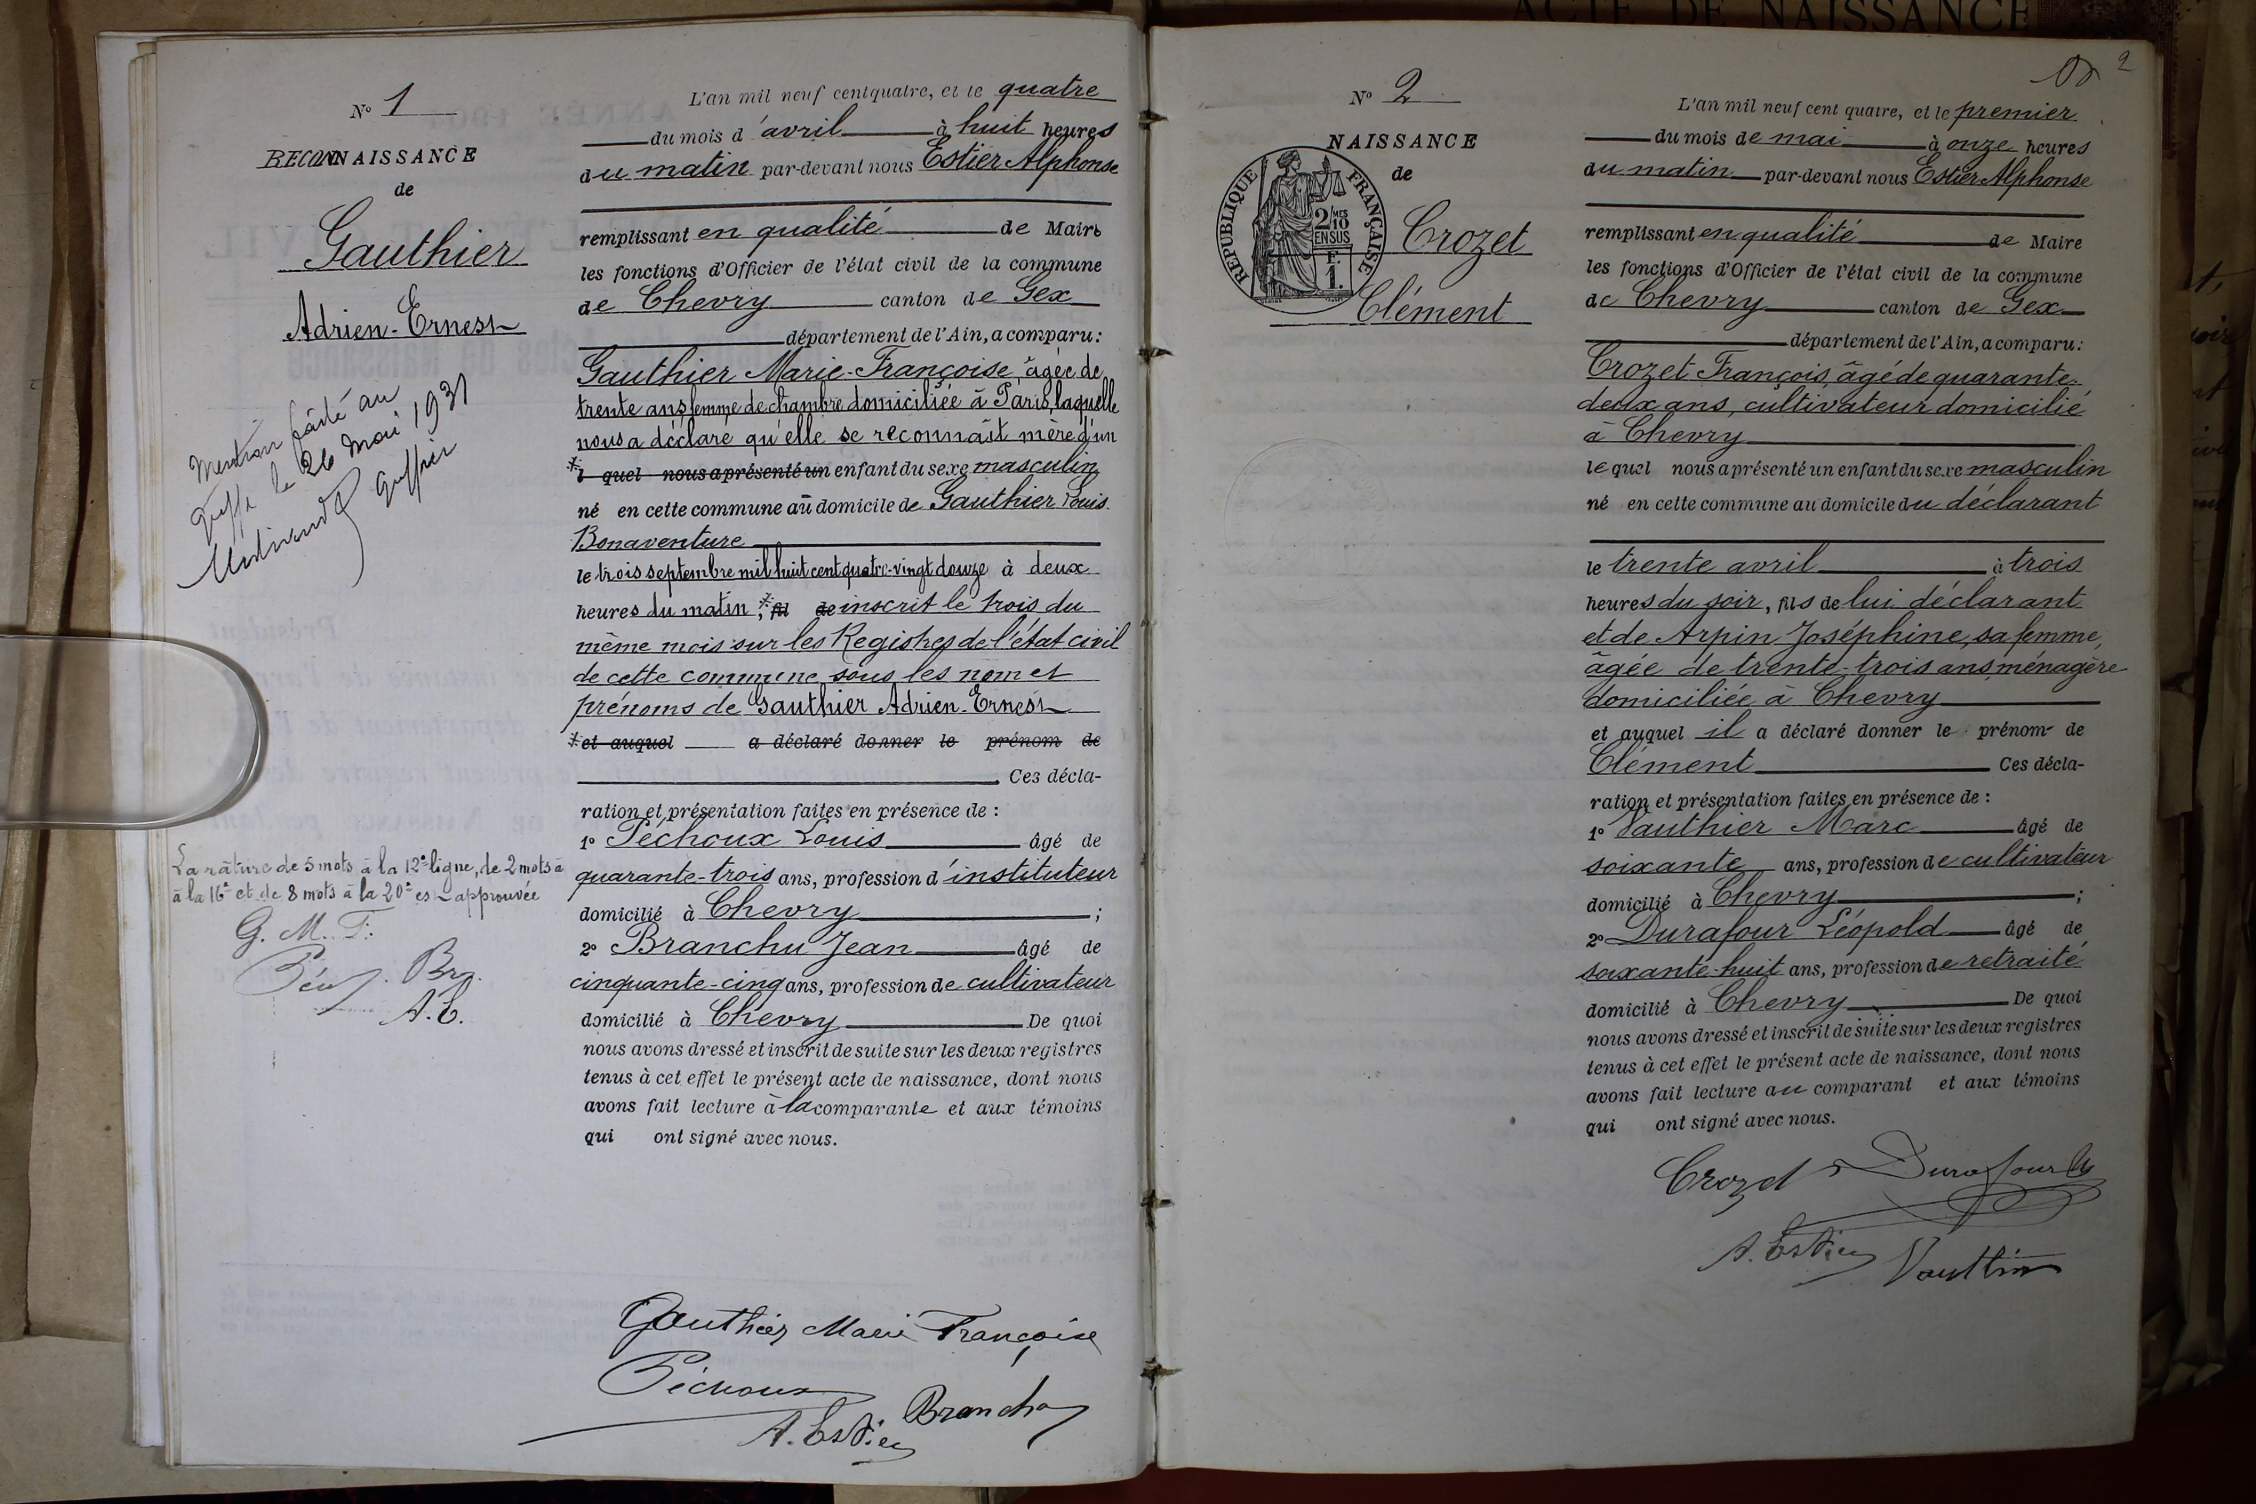 N° 1
RECONNAISSANCE
de
Gauthier
Adrien-Ernest
Mention faite au
greffe le 26 Mai 1931
greffier
La râture de 5 mots à la 12e ligne, de 2 mots à
à la 16e et de 8 mots à la 20e est approuvée
G. M. F.
Péch. Br.
A. E.
L'an mil neuf cent quatre, et le quatre
du mois d'avril à huit heures
du matin par-devant nous Estier Alphonse
remplissant en qualité de Maire
les fonctions d'Officier de l'état civil de la commune
de Chevry canton de Gex
département de l'Ain, a comparu :
Gauthier Marie-Françoise, âgée de
trente ans, femme de chambre domiciliée à Paris, laquelle
nous a déclaré qu'elle se reconnaît mère d'un
* l quel nous a présenté un enfant du sexe masculin
né en cette commune au domicile de Gauthier Louis
Bonaventure
le trois septembre mil huit cent quatre-vingt douze à deux
heures du matin ; * fil de inscrit le trois du
même mois sur les Registres de l'état civil
de cette commune sous les nom et
prénoms de Gauthier Adrien-Ernest
* et auquel a déclaré donner le prénom de
Ces décla-
ration et présentation faites en présence de :
1° Péchoux Louis âgé de
quarante-trois ans, profession d'instituteur
domicilié à Chevry ;
2° Branchu Jean âgé de
cinquante-cinq ans, profession de cultivateur
domicilié à Chevry De quoi
nous avons dressé et inscrit de suite sur les deux registres
tenus à cet effet le présent acte de naissance, dont nous
avons fait lecture à la comparante et aux témoins
qui ont signé avec nous.
Gauthier Marie Françoise
Péchoux
Branchu
A. Estier
ACTE DE NAISSANCE
2
N° 2
NAISSANCE
de
RÉPUBLIQUE FRANÇAISE
2/10MES
EN SUS
F.
1.
Crozet
Clément
L'an mil neuf cent quatre, et le premier
du mois de mai à onze heures
du matin par-devant nous Estier Alphonse
remplissant en qualité de Maire
les fonctions d'Officier de l'état civil de la commune
de Chevry canton de Gex
département de l'Ain, a comparu :
Crozet François, âgé de quarante-
deux ans, cultivateur domicilié
à Chevry
lequel nous a présenté un enfant du sexe masculin
né en cette commune au domicile du déclarant
le trente avril à trois
heures du soir, fils de lui déclarant
et de Arpin Joséphine, sa femme,
âgée de trente-trois ans, ménagère
domiciliée à Chevry
et auquel il a déclaré donner le prénom de
Clément Ces décla-
ration et présentation faites en présence de :
1° Vauthier Marc âgé de
soixante ans, profession de cultivateur
domicilié à Chevry ;
2° Durafour Léopold âgé de
soixante-huit ans, profession de retraité
domicilié à Chevry De quoi
nous avons dressé et inscrit de suite sur les deux registres
tenus à cet effet le présent acte de naissance, dont nous
avons fait lecture au comparant et aux témoins
qui ont signé avec nous.
Crozet Durafour
A. Estier Vauthier